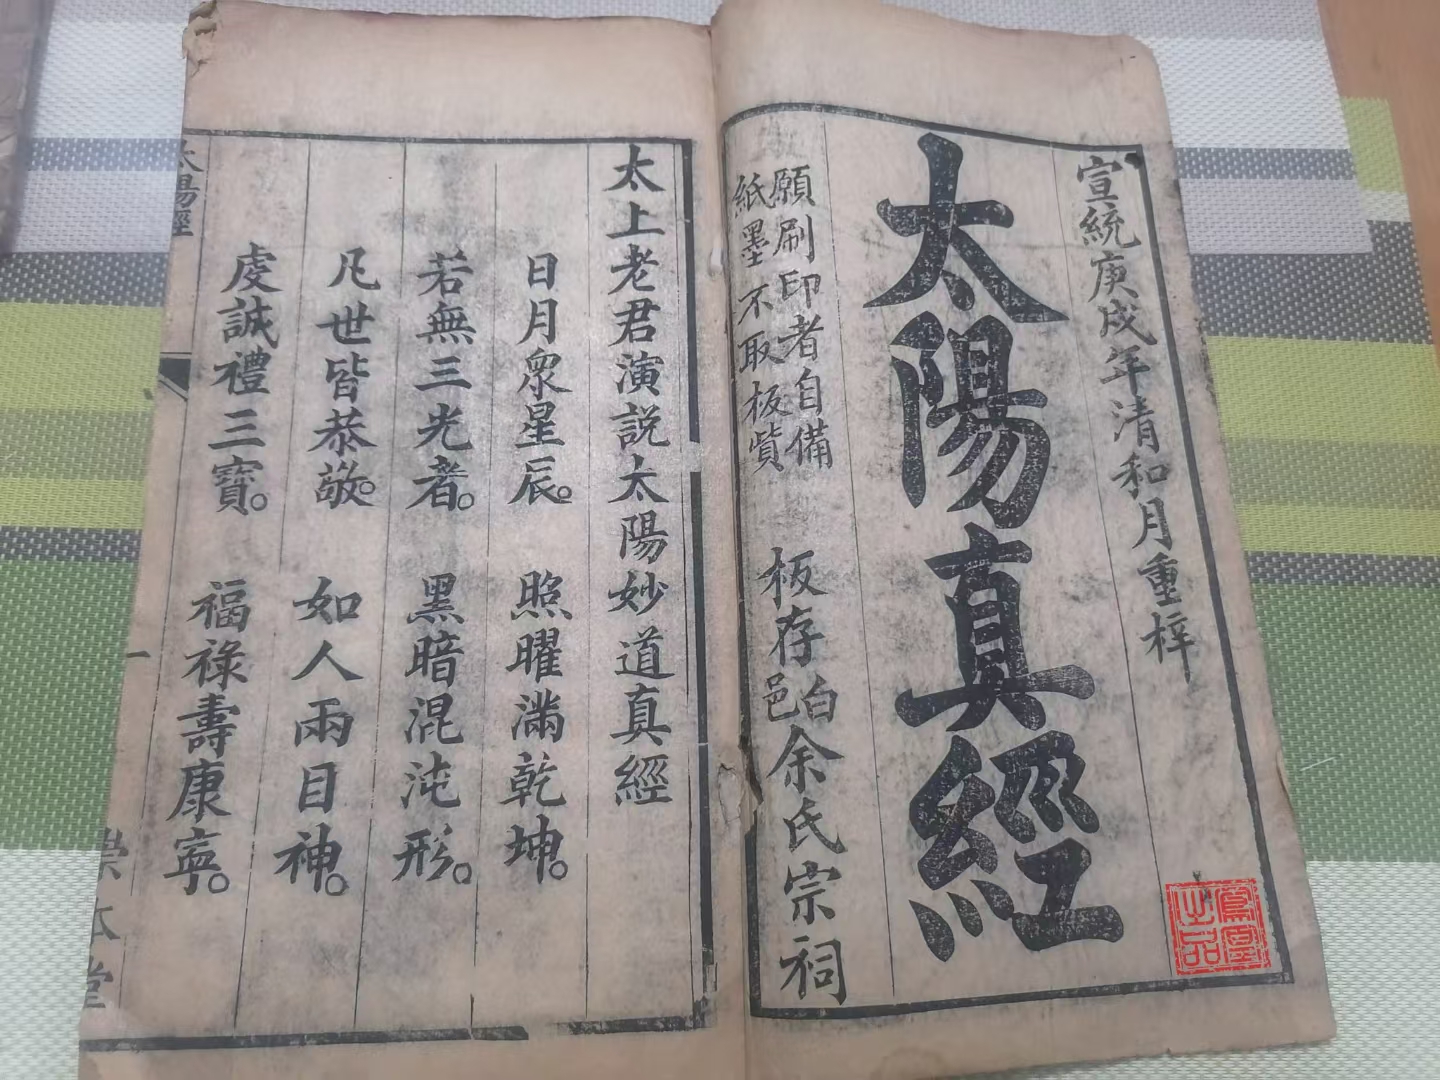 宣統庚戌年清和月重梓
太陽真經
願刷印者自備
紙墨不取板貲
板存白邑余氏宗祠
太上老君演説太陽妙道真經
日月眾星辰。照曜滿乾坤。
若無三光者。黑暗混沌形。
凡世皆恭敬。如人兩目神。
虔誠禮三寶。福祿壽康寧。
太陽經
一
崇本堂